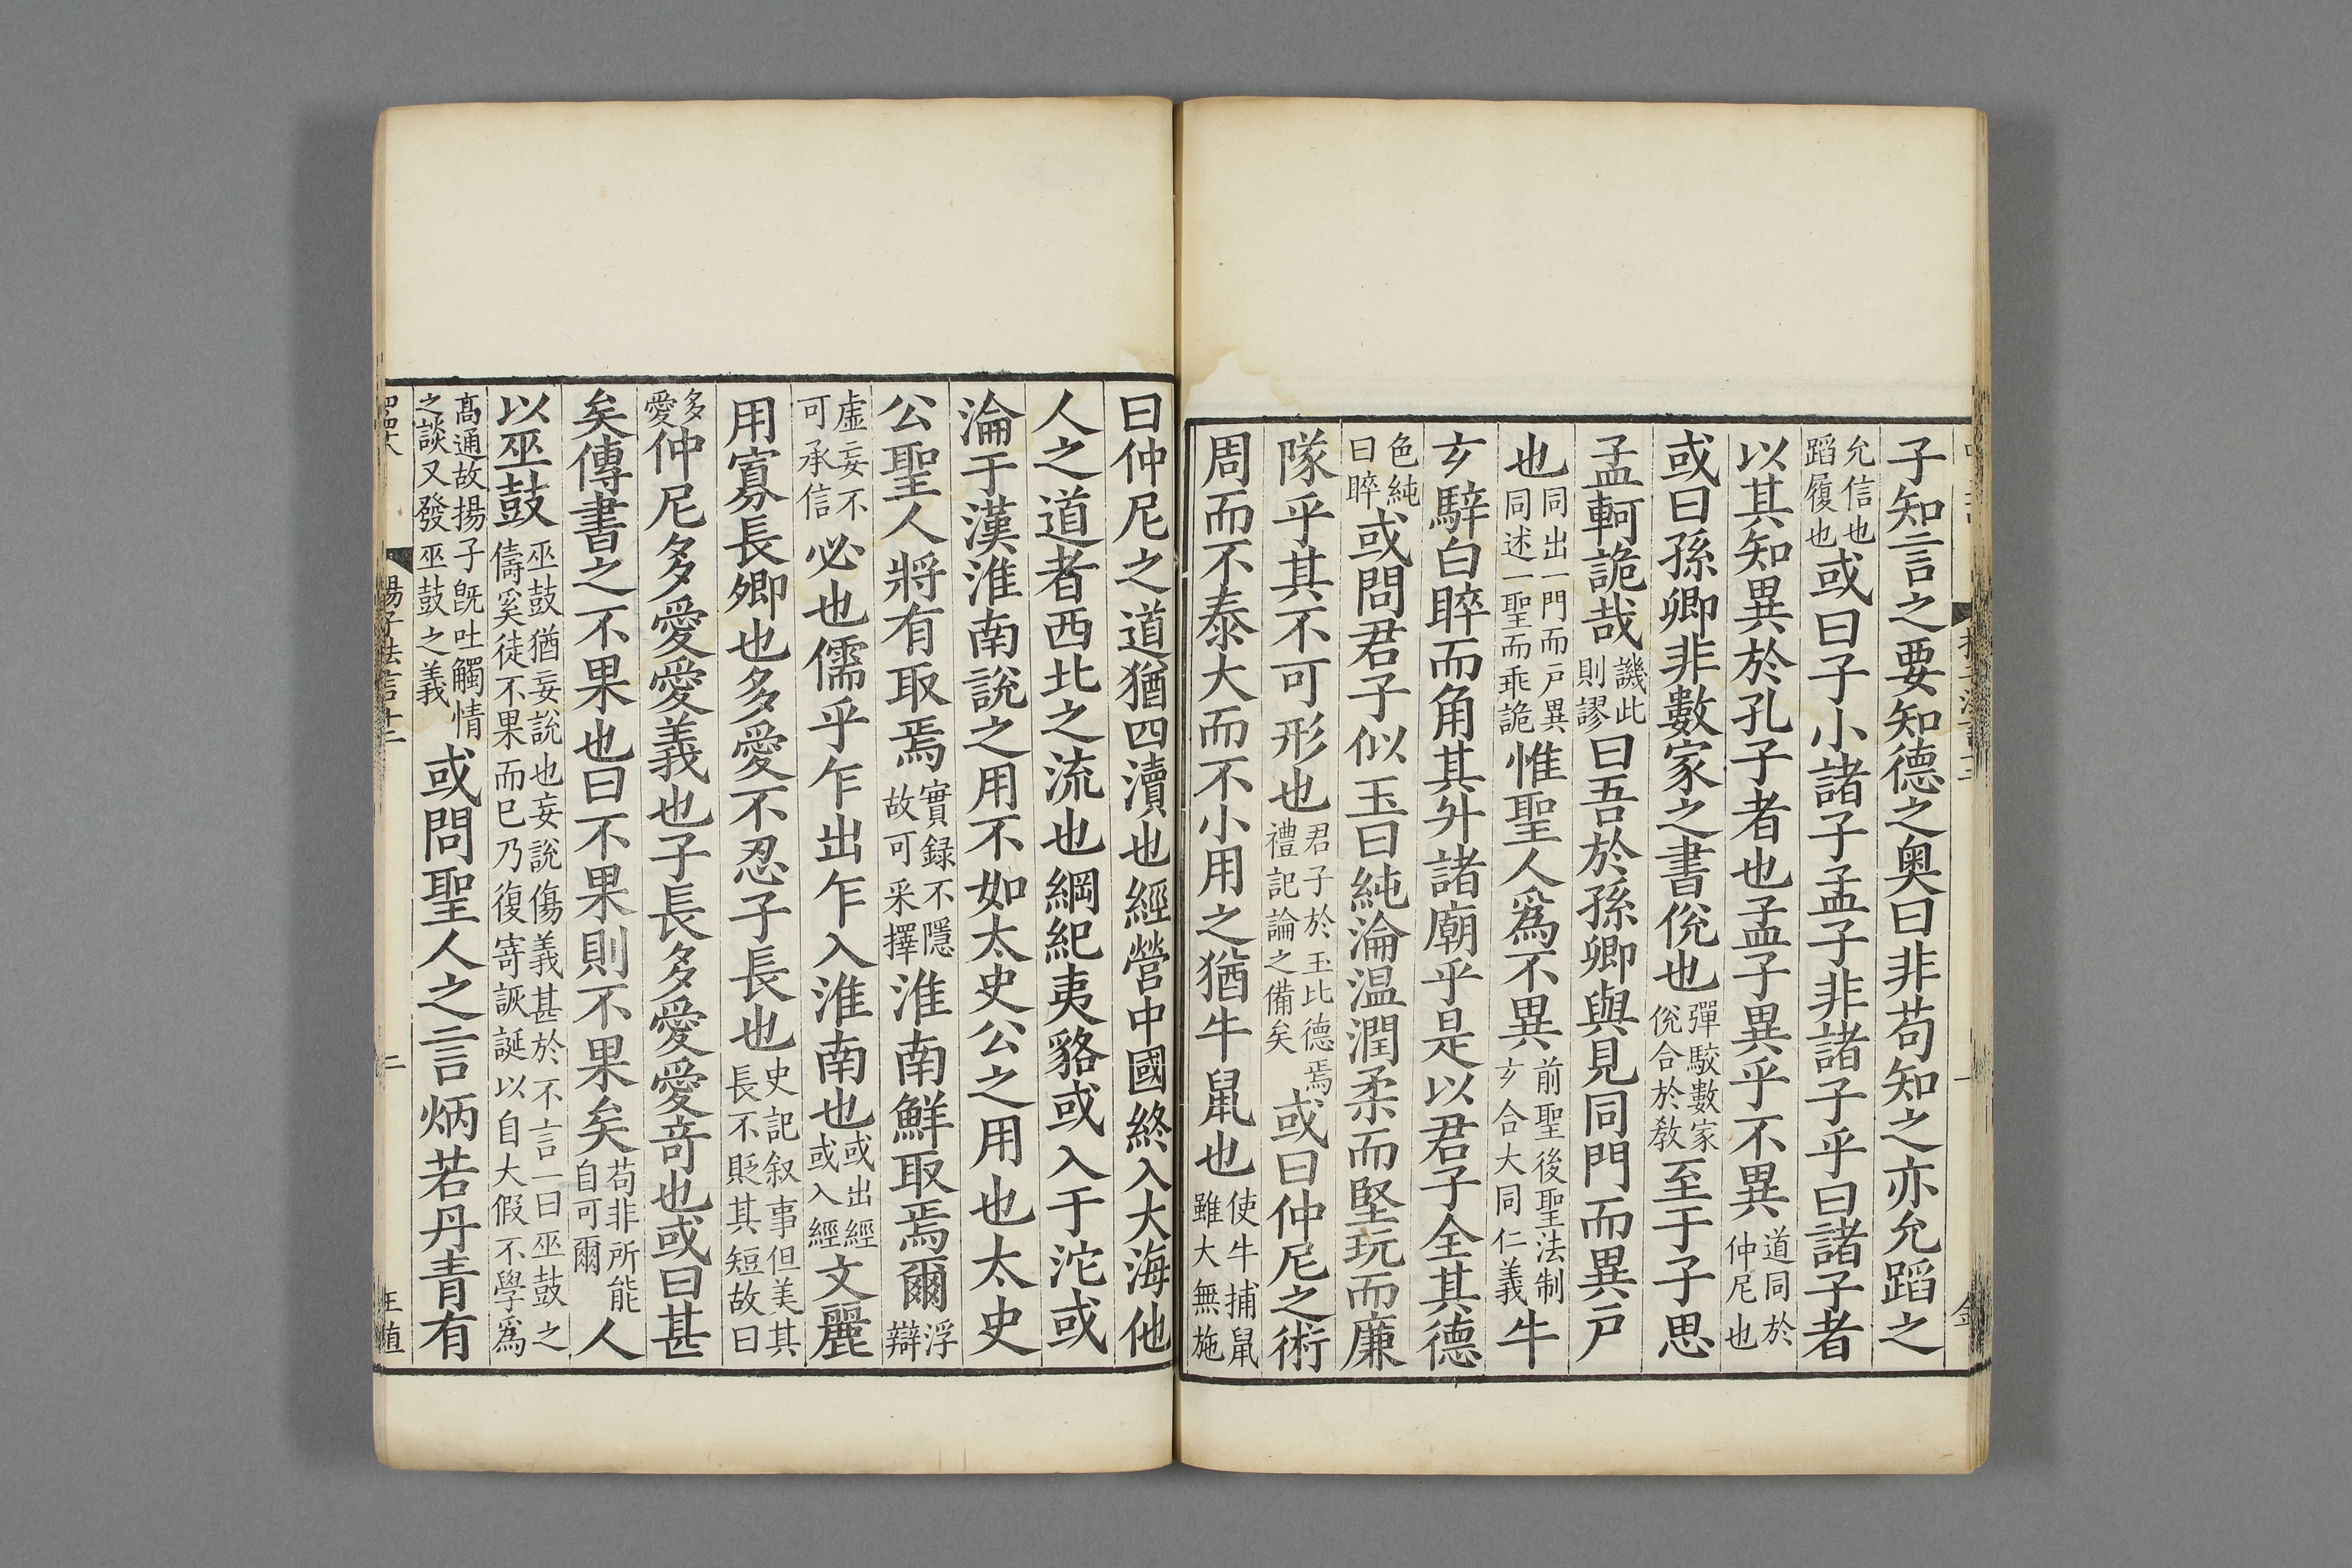 子知言之要知德之奥曰非苟知之亦允蹈之
允信也蹈履也或曰子小諸子孟子非諸子乎曰諸子者
以其知異於孔子者也孟子異乎不異道同於仲尼也
或曰孫卿非數家之書侻也彈駮數家侻合於教至于子思
孟軻詭哉譏此則謬曰吾於孫卿與見同門而異戸
也同出一門而戸異同述一聖而乖詭惟聖人爲不異前聖後聖法制玄合大同仁義牛
玄騂白睟而角其升諸廟乎是以君子全其德
色純曰睟或問君子似玉曰純淪温潤柔而堅玩而廉
隊乎其不可形也君子於玉比德焉禮記論之備矣或曰仲尼之術
周而不泰大而不小用之猶牛鼠也使牛捕鼠雖大無施
曰仲尼之道猶四瀆也經營中國終入大海他
人之道者西北之流也綱紀夷貉或入于沱或
淪于漢淮南說之用不如太史公之用也太史
公聖人將有取焉實録不隱故可采擇淮南鮮取焉爾浮辯
虛妄不可承信必也儒乎乍出乍入淮南也或出經或入經文麗
用寡長卿也多愛不忍子長也史記叙事但美其長不貶其短故曰
多愛仲尼多愛愛義也子長多愛愛竒也或曰甚
矣傳書之不果也曰不果則不果矣苟非所能自可爾人
以巫鼓巫鼓猶妄說也妄說傷義甚於不言一曰巫鼓之儔奚徒不果而已乃復寄詼誕以自大假不學爲
高通故揚子旣吐觸情之談又發巫鼓之義或問聖人之言炳若丹青有
揚子法言十二
二